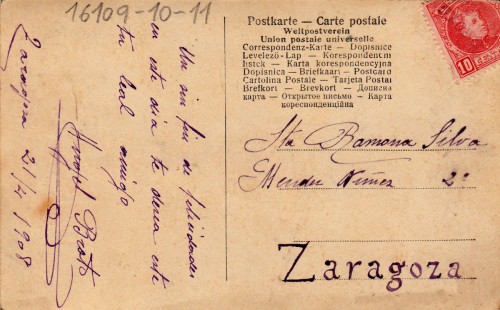 16109-10-11
Un sin fin de felicidades
en este dia te desea este
tu leal amigo
Angel
Zaragoza 21/4 1908
Postkarte – Carte postale
Weltpostverein
Union postale universelle
Correspondenz-Karte – Dopisnice
Levelező-Lap – Korespondencni
listek – Karta korespondencyjna
Dopisnica – Briefkaart – Postcard
Cartolina Postale – Tarjeta Postal
Brefkort – Brevkort – Дописна
карта – Открытое письмо – Карта
кореспонденційна
10
Sta Ramona Silva
Mendez Nuñez 2º
Zaragoza